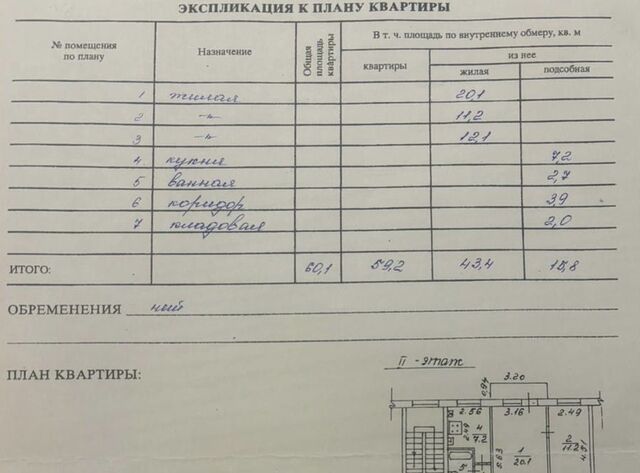 ЭКСПЛИКАЦИЯ К ПЛАНУ КВАРТИРЫ
№ помещения по плану Назначение Общая площадь квартиры В т. ч. площадь по внутреннему обмеру, кв. м
квартиры из нее
жилая подсобная
1 жилая 20,1
2 -"- 11,2
3 -"- 12,1
4 кухня 7,2
5 ванная 2,7
6 коридор 3,9
7 кладовая 2,0
ИТОГО: 60,1 59,2 43,4 15,8
ОБРЕМЕНЕНИЯ
ПЛАН КВАРТИРЫ:
II - этаж
0,94 3.20
2.56 3.16 2.49
2.49 4 7.2
2 11.2 4.51
5 5.63 1 20.1